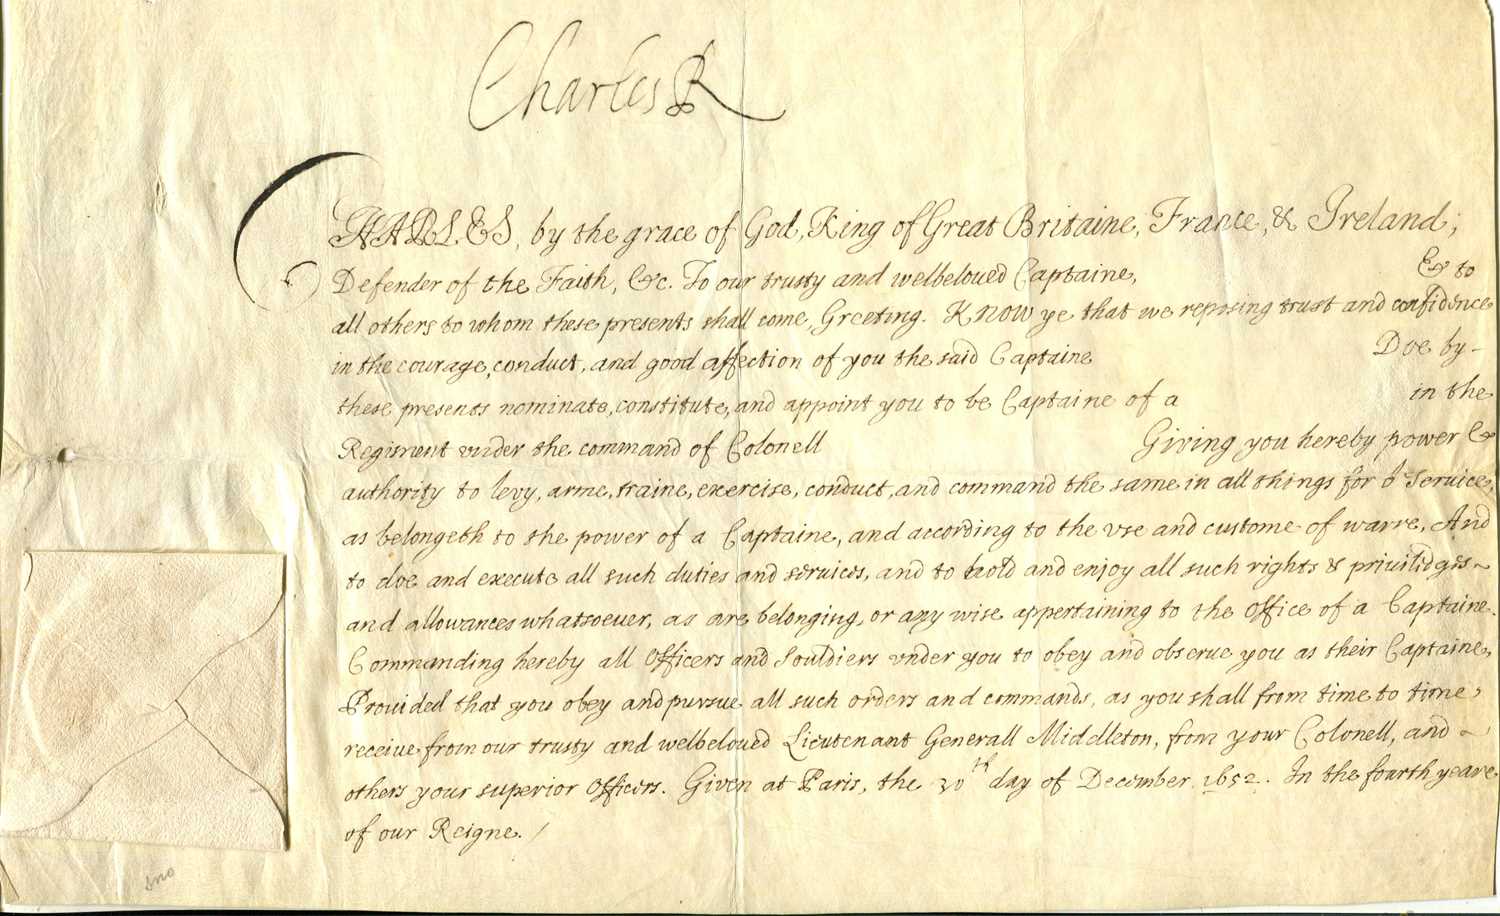 Charles R
CHARLES, by the grace of God, King of Great Britaine, France, & Ireland;
Defender of the Faith, &c. To our trusty and welbeloued Captaine, & to
all others to whom these presents shall come, Greeting. KNOW ye that we reposing trust and confidence
in the courage, conduct, and good affection of you the said Captaine Doe by-
these presents nominate, constitute, and appoint you to be Captaine of a in the
Regiment vnder the command of Colonell Giving you hereby power &
authority to levy, arme, traine, exercise, conduct, and command the same in all things for oʳ Service,
as belongeth to the power of a Captaine, and according to the vse and custome of warre, And
to doe and execute all such duties and seruices, and to hold and enjoy all such rights & priuilidges~
and allowances whatsoeuer, as are belonging, or any wise appertaining to the Office of a Captaine.
Commanding hereby all Officers and Souldiers vnder you to obey and obserue you as their Captaine,
Prouided that you obey and pursue all such orders and commands, as you shall from time to time,
receive from our trusty and welbeloued Lieutenant Generall Middleton, from your Colonell, and ~
others your superior Officers. Given at Paris, the 30th day of December 1652. In the fourth yeare
of our Reigne. /